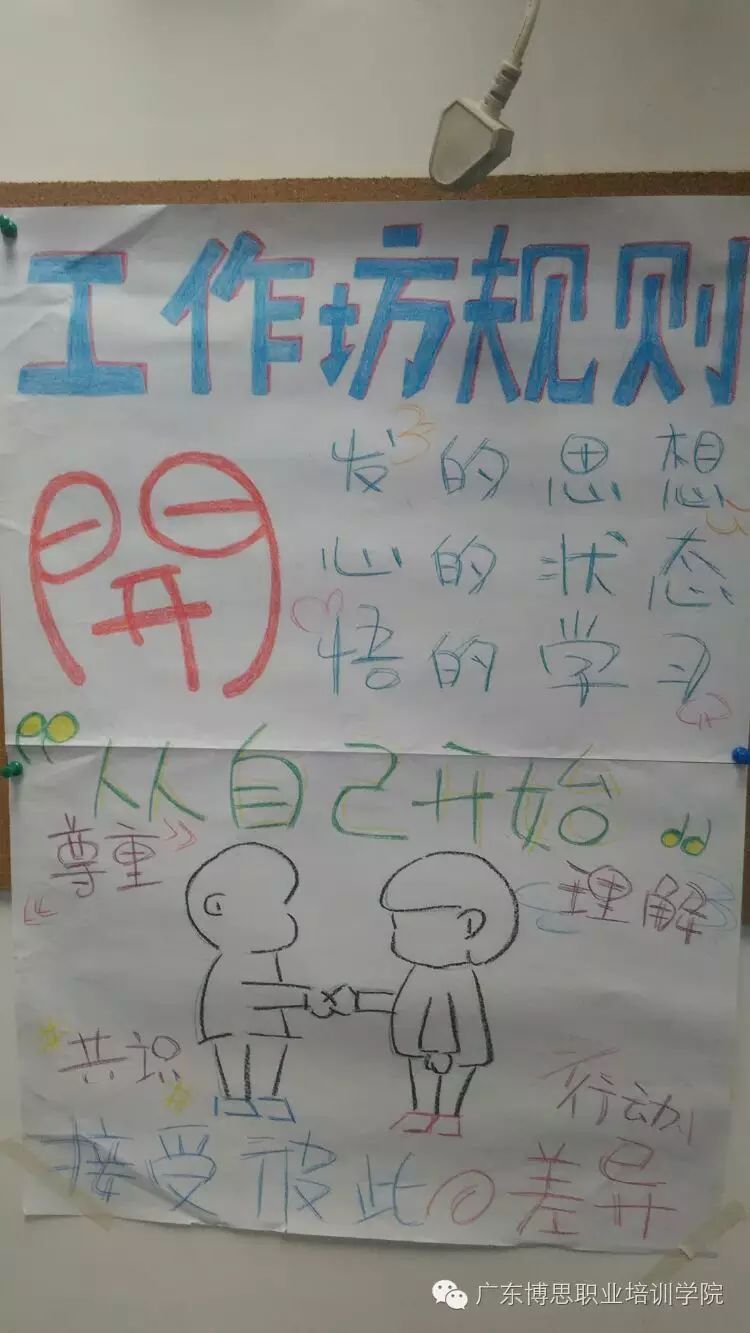 工作坊规则
開
发的思想
心的状态
悟的学习
从自己开始
尊重
理解
共识
行动
接受彼此の差异
广东博思职业培训学院